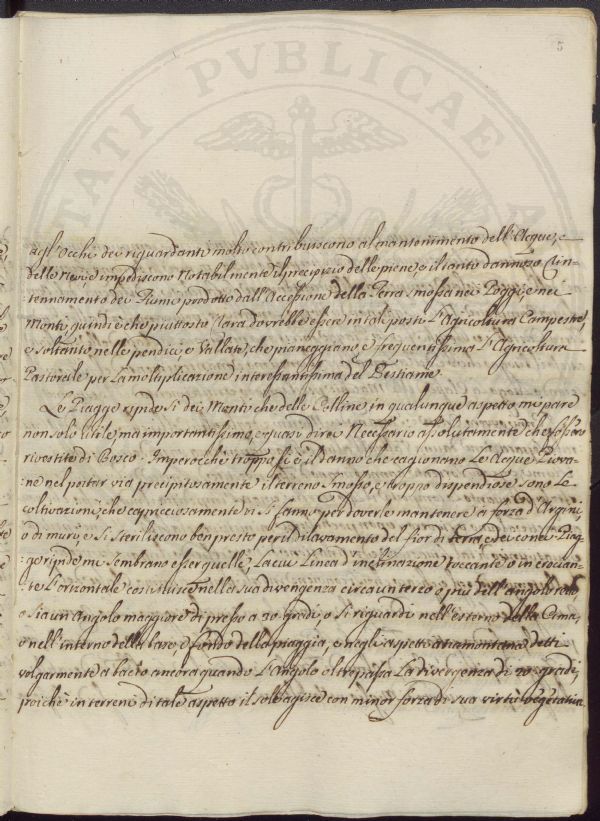 5
TATI PUBLICAE
agl'Occhi dei riguardanti molto contribuiscono al mantenimento dell'Acque, e
delle Nevi e impediscono Notabilmente il precipizio delle piene, e il tanto dannoso Rin-
ternamento dei Fiumi prodotto dall'Accessione della Terra smossa nei Poggi, e nei
Monti, quindi è che piuttosto Rara dovrebbe essere in tali posti L'Agricoltura Campestre,
e soltanto nelle pendici, e Vallate, che pianeggiano, e frequentissima L'Agricoltura
Pastorale per La moltiplicazione interessantissima del Bestiame.
Le Piagge ripide Si dei Monti che delle Colline in qualunque aspetto mi pare
non solo utile, ma importantissimo, e quasi direi Necessario assolutamente che fossero
rivestite di Bosco. Imperocchè troppo si è il danno che cagionano Le Acque Piova-
ne nel portar via precipitosamente il terreno Smosso, e troppo dispendiose sono Le
coltivazioni, che capricciosamente di Si fanno per doverle mantenere a forza d'Argini,
o di muri, e Si Steriliscono ben presto per il dilavamento del fior di terra, e dei conci. Piag-
ge ripide mi Sembrano esser quelle, La cui Linea d'inclinazione toccante o incrocian-
te L'orizontale costituisce nella sua divergenza circa un terzo o più dell'angolo retto
o sia un angolo maggiore di presso a 30 gradi, o Si riguardi nell'esterno della Cima,
o nell'interno della base, e fondo della piaggia, e negli aspetti a tramontana detti
volgarmente a bacìo ancora quando L'Angolo oltrepassa La divergenza di 20 gradi,
poichè in terreni di tale aspetto il sole agisce con minor forza di sua virtù vegetativa